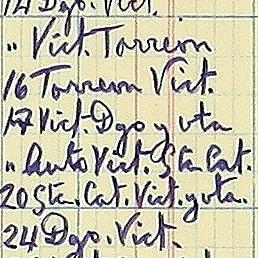 14 Dgo. Vict.
" Vict. Torreon
16 Torreon Vict.
17 Vict. Dgo y vta
" Auto Vict. Sta. Cat.
20 Sta. Cat. Vict. y vta.
24 Dgo. Vict.